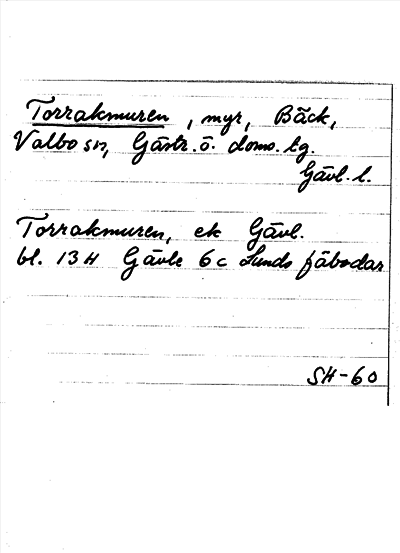 Torrakmuren, myr, Bäck,
Valbo sn, Gästr. ö. doms. tg.
Gävl. l.
Torrakmuren, ek Gävl.
bl. 13 H Gävle 6 c Lunds fäbodar
SH-60